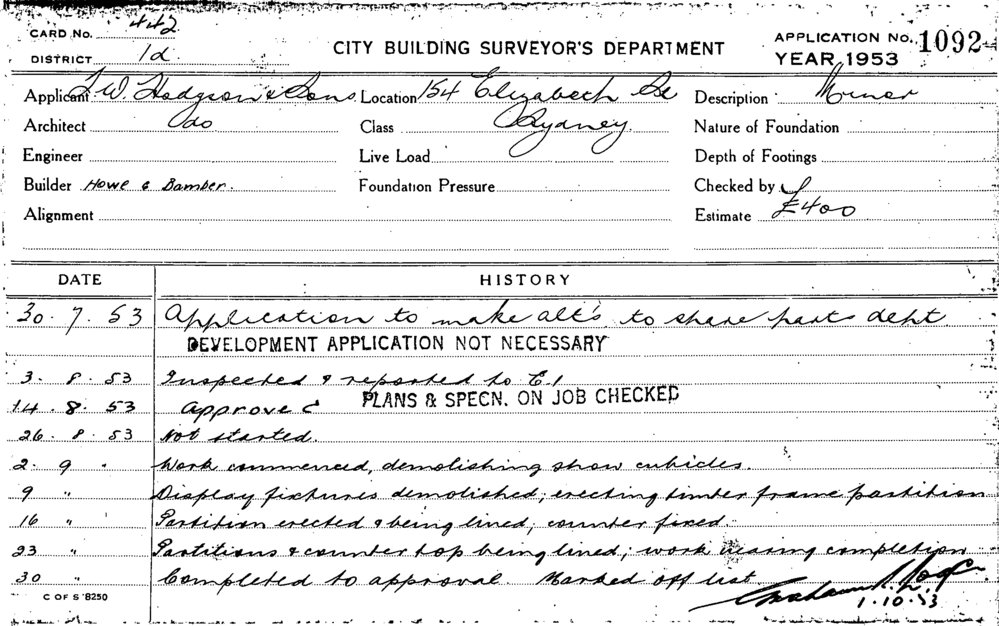 CARD No. 442
DISTRICT 1d
CITY BUILDING SURVEYOR'S DEPARTMENT
APPLICATION No. 1092
YEAR 1953
Applicant W. Hodgson & Sons Location 154 Elizabeth St Description Minor
Architect do Class Sydney Nature of Foundation
Engineer Live Load Depth of Footings
Builder Howe & Bamber. Foundation Pressure Checked by
Alignment Estimate £400
DATE HISTORY
30. 7. 53 Application to make alt's to share parts dept.
DEVELOPMENT APPLICATION NOT NECESSARY
3. 8. 53 Inspected & reported to E.1
14. 8. 53 Approved PLANS & SPECN. ON JOB CHECKED
26. 8. 53 Not started.
2. 9 " Work commenced, demolishing show cubicles.
9 " Display fixtures demolished; erecting timber frame partition
16 " Partition erected & being lined; counter fixed.
23 " Partitions & counter top being lined; work nearing completion
30 " Completed to approval. Marked off list.
C OF S 8250
1.10.53